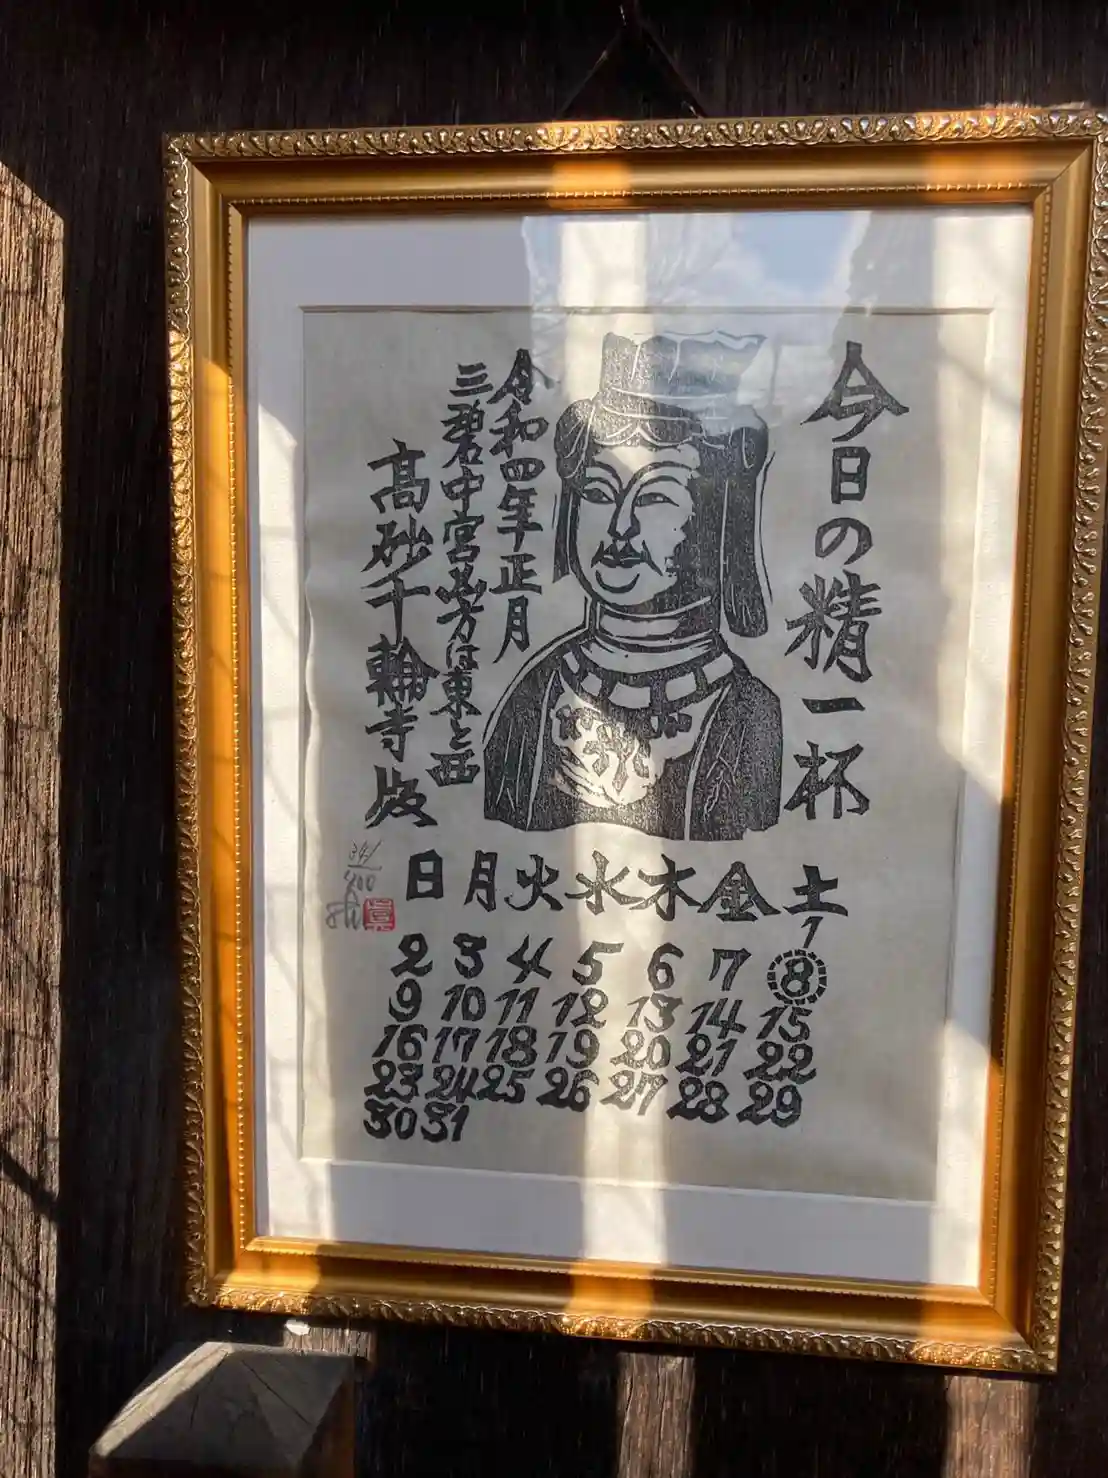 今日の精一杯
令和四年正月
三碧中宮恵方は東と西
高砂千輪寺版
341/400
日 月 火 水 木 金 土
1
2 3 4 5 6 7 8
9 10 11 12 13 14 15
16 17 18 19 20 21 22
23 24 25 26 27 28 29
30 31